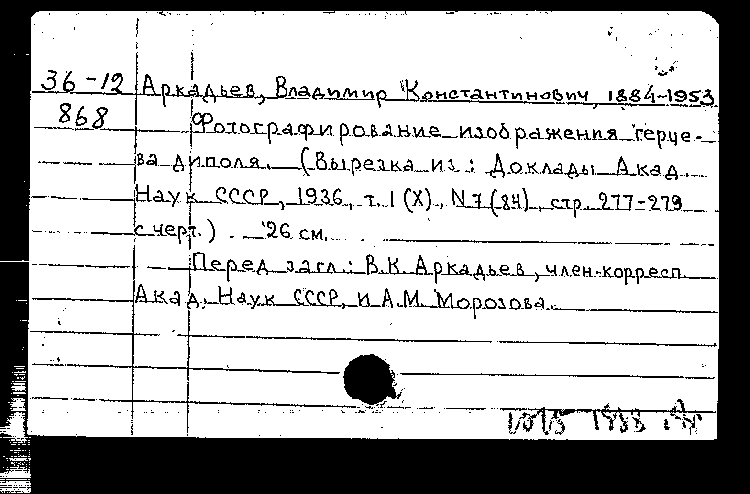 36-12 Аркадьев, Владимир Константинович, 1884-1953
868 Фотографирование изображения герце-
ва диполя. (Вырезка из: Доклады Акад.
Наук СССР, 1936, т. 1 (X), N 7 (84), стр. 277-279
с черт.) 26 см.
Перед загл.: В.К. Аркадьев, член-корресп.
Акад. Наук СССР, и А.М. Морозова.